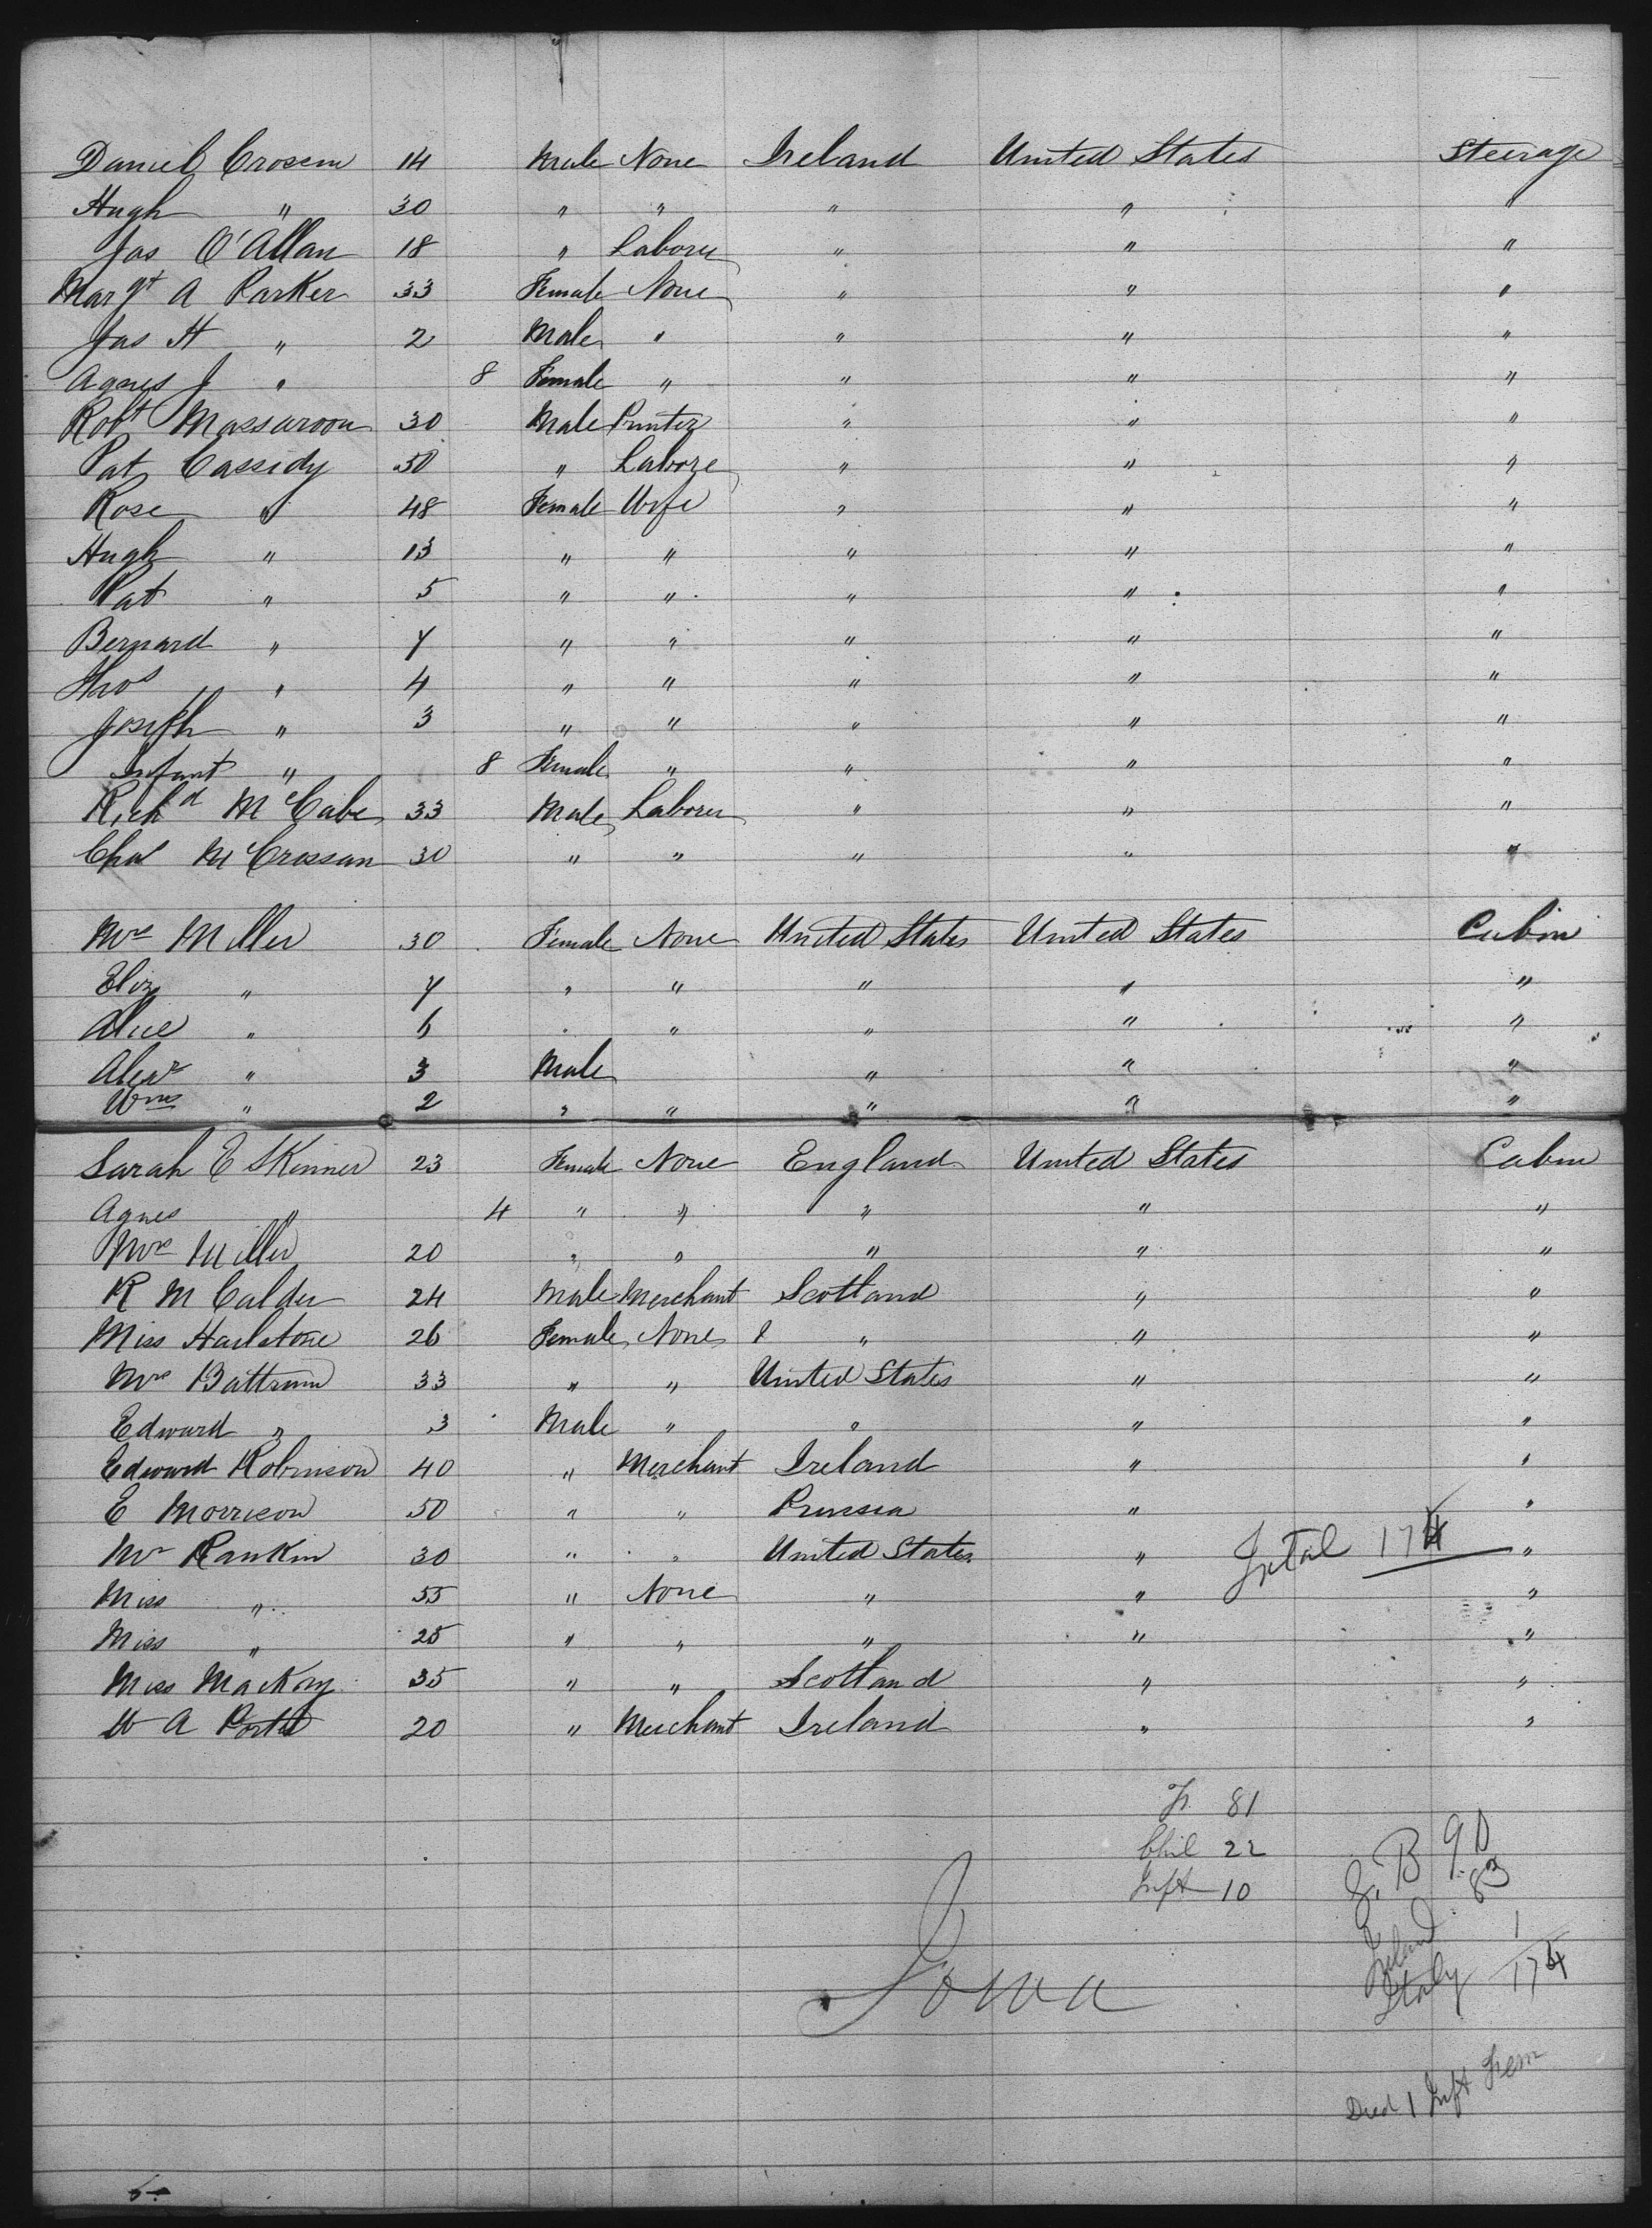 Daniel Crossin 14 Male None Ireland United States Steerage
Hugh " 30 " " " " "
Jas O'Allan 18 " Laborer " " "
Margt A Parker 33 Female None " " "
Jas H " 2 Male " " " "
Agnes J " 8 Female " " " "
Robt 30 Male Printer " " "
Pat Cassidy 50 " Labore " " "
Rose " 48 Female Wife " " "
Hugh " 13 " " " " "
Pat " 5 " " " " "
Bernard " 7 " " " " "
Thos " 4 " " " " "
Joseph " 3 " " " " "
Infant " 8 Female " " " "
Richd McCabe 33 Male Laborer " " "
Chas McCrossan 30 " " " " "
Mrs Miller 30 Female None United States United States Cabin
Eliz " 7 " " " " "
Alice " 6 " " " " "
Alexr " 3 Male " " "
Wm " 2 " " " " "
Sarah E Skinner 23 Female None England United States Cabin
Agnes " 4 " " " " "
Mrs Miller 20 " " " " "
R M Calder 24 Male Merchant Scotland " "
Miss Hailstone 26 Female None " " "
Mrs Battrum 33 " " United States " "
Edward " 3 Male " " " "
Edward Robinson 40 " Merchant Ireland " "
E Morrison 50 " " Prussia " "
Mr Rankin 30 " " United States " "
Total 174
Miss " 55 " None " " "
Miss " 25 " " " " "
Miss Mackay 35 " " Scotland " "
W A Porter 20 " Merchant Ireland " "
81
Chil 22
Inft 10
G. B 90
Ireland 83
Italy 1
174
Iowa
Died 1 Inft Fem